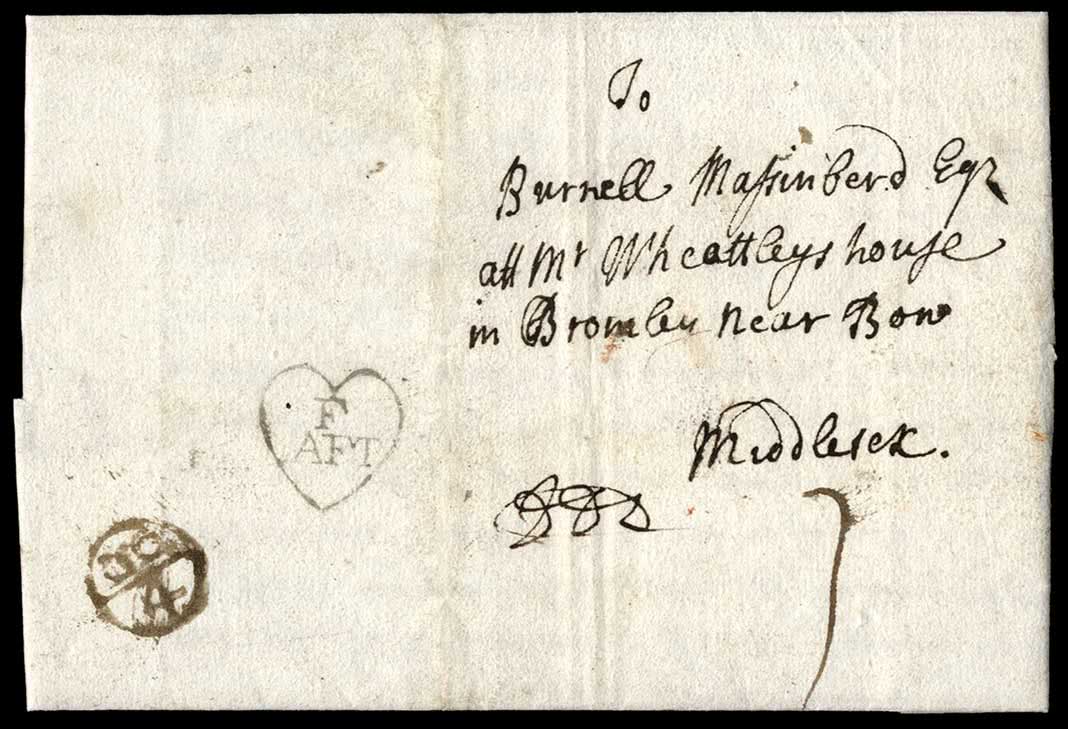 To
Burnell Maſsinberd Esqr
att Mr Wheattleys houſe
in Bromley near Bow
Middlesex.
F
AFT
7